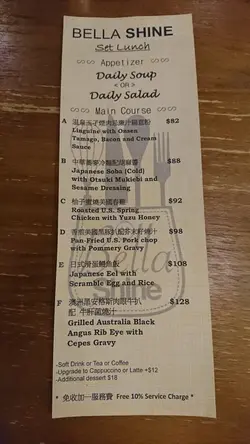 BELLA SHINE
Set Lunch
Appetizer
Daily Soup
< OR >
Daily Salad
Main Course
A 溫泉玉子燒肉忌廉汁扁意粉 $82
Linguine with Onsen
Tamago, Bacon and Cream
Sauce
B 中華蕎麥冷麵配胡麻醬 $88
Japanese Soba (Cold)
with Otsuki Mukiebi and
Sesame Dressing
C 柚子蜜燒美國春雞 $92
Roasted U.S. Spring
Chicken with Yuzu Honey
D 香煎美國黑豚扒配芥末籽燒汁 $98
Pan-Fried U.S. Pork chop
with Pommery Gravy
E 日式滑蛋鰻魚飯 $108
Japanese Eel with
Scramble Egg and Rice
F 澳洲黑安格斯肉眼牛扒 $128
配 牛肝菌燒汁
Grilled Australia Black
Angus Rib Eye with
Cepes Gravy
Bella
Shine
-Soft Drink or Tea or Coffee
-Upgrade to Cappuccino or Latte +$12
-Additional dessert $18
* 免收加一服務費 Free 10% Service Charge *